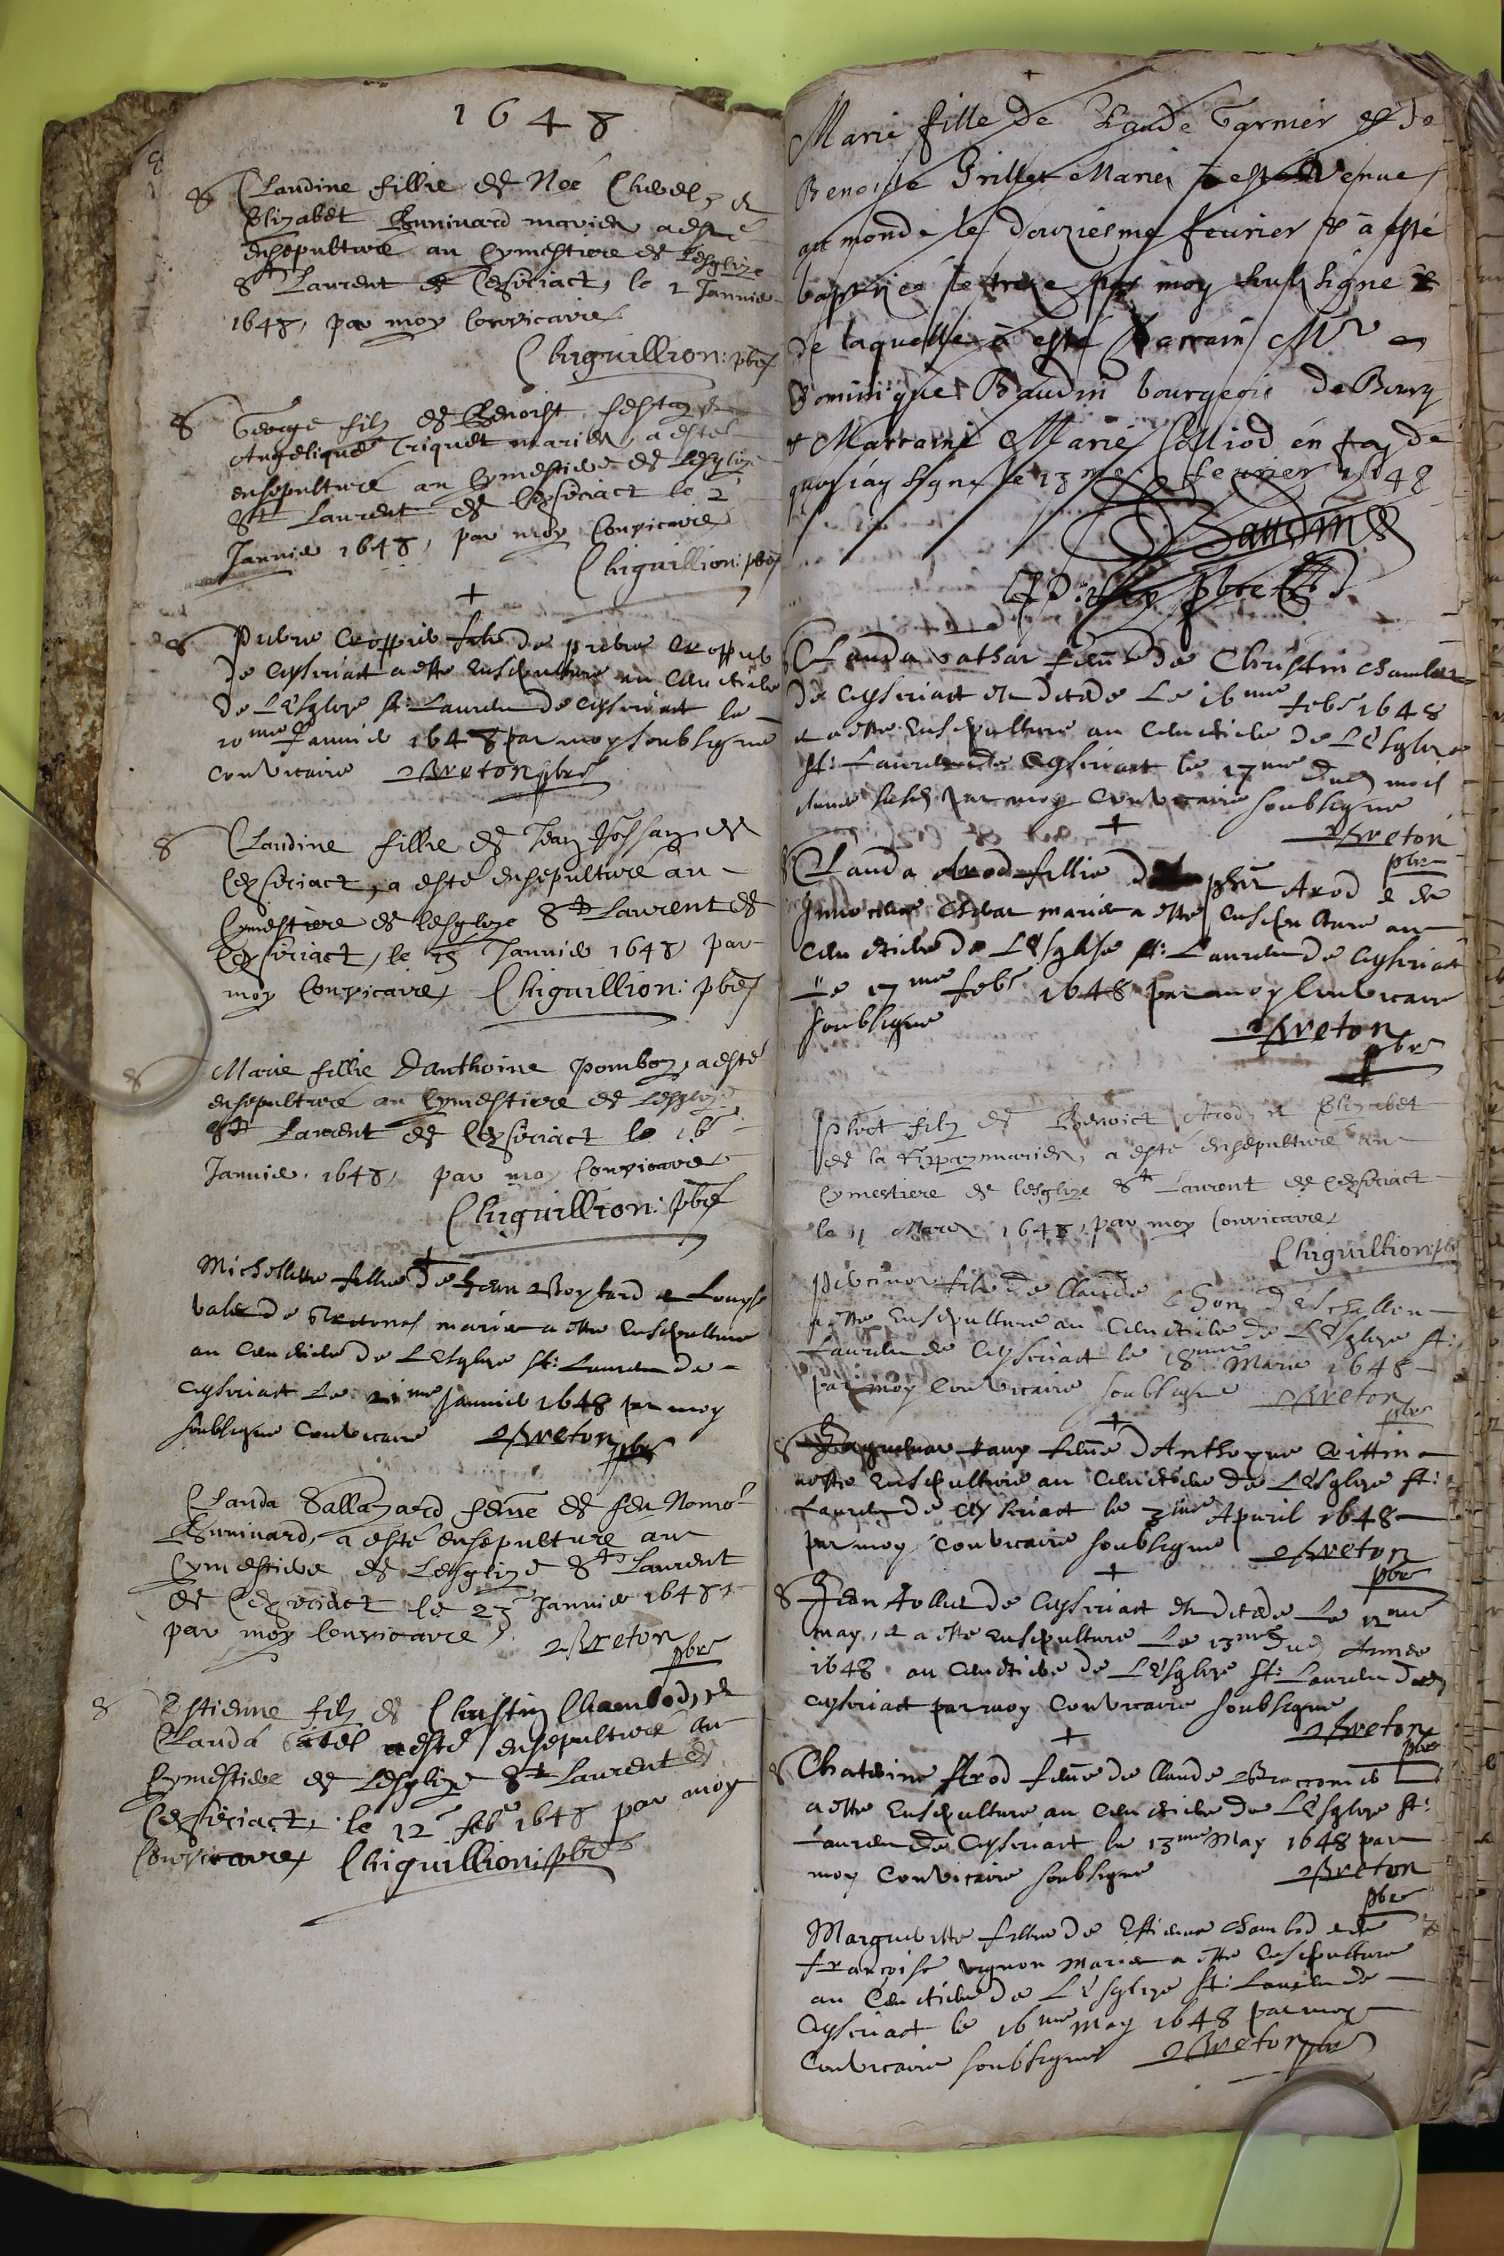 1648
Claudine fillie de Noé Chevel, et
Elizabet Bruninard mariés a esté
ensepulturé au Cymestiere de Lesglize
St Laurent de Ceyseriact, le 2 Janvier
1648, par moy Convicaire
Chiguillion: pbre
George filz de Benoist et
Angelique Triquet mariés, a esté
ensepulturé au Cymestiere de Lesglize
St Laurent de Ceyseriact le 2
Janvier 1648, par moy Convicaire
Chiguillion: pbre
de Ceyseriact a este ensepulture au Cemetiere
de L'Esglize St: Laurent de Ceyseriact le
10me Janvier 1648 par moy soubsigne
convicaire Breton pbre
Claudine fillie de Jean de
Ceyseriact, a esté ensepulturé au
Cymestiere de lesglize St Laurent de
Ceyseriact, le 15 Janvier 1648 par
moy Convicaire, Chiguillion: pbre
Marie fillie Danthoine pomboz, a esté
ensepulturé au Cymestiere de Lesglize
St Laurent de Ceyseriact le 16
Janvier 1648, par moy Convicaire
Chiguillion: pbre
Michellette fillie de Jean Boytard et Louyse
mariés a este ensepulture
au Cemetiere de L'Esglize St: Laurent de
Ceyseriact Le 21me Janvier 1648 par moy
soubsigne Convicaire Breton pbre
Clauda Sallazard feme de feu
Bruninard, a esté ensepulturé au
Cymestiere de Lesglize St Laurent
de Ceyseriact le 23 Janvier 1648
par moy Convicaire, Breton
pbre
Estienne filz de Christin Chambod, et
Clauda Catel a esté ensepulturé au
Cymestiere de Lesglize St Laurent de
Ceyseriact, le 12 feb 1648 par moy
Convicaire, Chiguillion: pbre
Marie fille de Claude Garnier et de
Benoiste Grillet Mariés est Venue
au monde le douziesme fevrier & à esté
baptizée le treze par moy soubsigné &
de laquelle à esté Parrain Mr
Dominique Baudin bourgeois de Bourg
et Marraine Marie Colliod en foy de
quoy iay signé le 13me fevrier 1648
Baudin
pbre
Clauda vathar feme de Christin chambod
de Ceyseriact est decede Le 16me feb 1648
et a este ensepulture au Cemetiere de L'Esglize
St: Laurent de Ceyseriact le 17me dud mois
par moy Convicaire soubsigne
Breton
pbre
Clauda Arod fillie de Arod et de
mariés a este ensepulture au
Cemetiere de L'Esglize St: Laurent de Ceyseriact
Le 17me feb 1648 par moy Convicaire
soubsigne Breton
pbre
filz de Benoict Arod, et Elizabet
de la mariés, a esté ensepulturé au
Cymestiere de lesglize St Laurent de Ceyseriact
le 11 Mars 1648, par moy Convicaire,
Chiguillion: pbre
fils de Claude
a este ensepulture au Cemetiere de L'Esglize St:
Laurent de Ceyseriact le 18me Mars 1648
par moy Convicaire soubsigne Breton
pbre
feme d'Anthoyne
a este ensepulture au Cemetiere de L'Esglize St:
Laurent de Ceyseriact le 3me Apvril 1648
par moy Convicaire soubsigne Breton
pbre
Jean de Ceyseriact est decede Le 12me
may, et a este ensepulture Le 13me dud Annee
1648 au Cemetiere de L'Esglize St: Laurent de
Ceyseriact par moy Convicaire soubsigne
Breton
pbre
Chaterine Arod feme de Claude
a este ensepulture au Cemetiere de L'Esglize St:
Laurent de Ceyseriact le 13me May 1648 par
moy Convicaire soubsigne Breton
pbre
Marguerite fillie de Estienne chambod et de
françoise vignon mariés a este ensepulture
au Cemetiere de L'Esglize St: Laurent de
Ceyseriact le 16me may 1648 par moy
Convicaire soubsigne Breton pbre